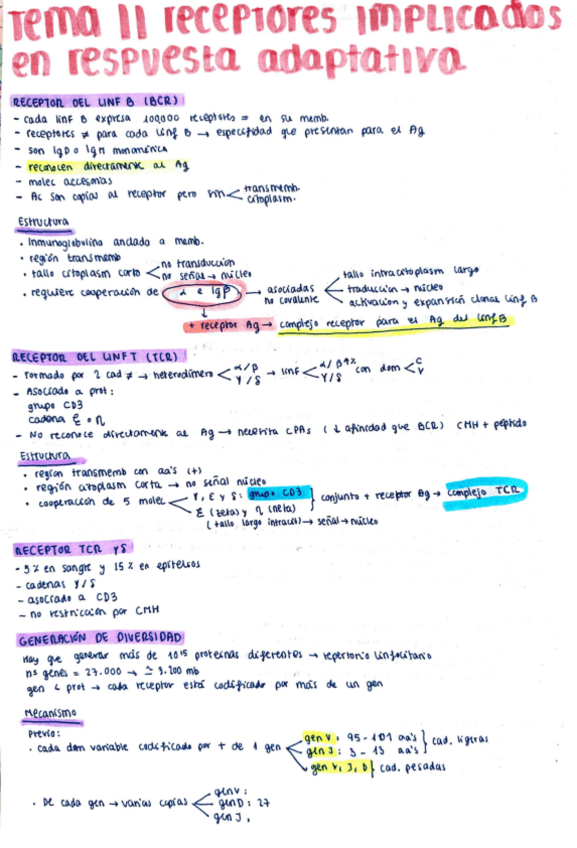 Tema 11 receptores implicados
en respuesta adaptativa
RECEPTOR DEL LINF B (BCR)
- cada linf B expresa 100,000 receptores = en su memb.
- receptores ≠ para cada linf B → especifidad que presentan para el Ag
- son IgD o IgM monomérica
- reconocen directamente al Ag
- molec accesorias
- Ac son copias al receptor pero sin < transmemb.
citoplasm.
Estructura
· Inmunoglobulina anclada a memb.
· región transmemb
· tallo citoplasm corto < no transducción
no señal → núcleo
· requiere cooperación de α e Igβ → asociadas no covalente < tallo intracitoplasm largo
traducción → núcleo
activación y expansión clonal linf B
+ receptor Ag → complejo receptor para el Ag del linf B
RECEPTOR DEL LINF T (TCR)
- Formado por 2 cad ≠ → heterodímero < α/β γ/δ → linf < α/β γ/δ con dom < C V
- Asociado a prot:
grupo CD3
cadena ξ o η
- No reconoce directamente al Ag → necesita CPAs (↓ afinidad que BCR) CMH + péptido
Estructura
· región transmemb con aa's (+)
· región citoplasm corta → no señal núcleo
· cooperación de 5 molec < γ, ε y δ: grupo CD3
ξ (zeta) y η (neta) } conjunto + receptor Ag → complejo TCR
(tallo largo intracit) → señal → núcleo
RECEPTOR TCR γδ
- 5% en sangre y 15% en epitelios
- cadenas γ/δ
- asociado a CD3
- no restricción por CMH
GENERACIÓN DE DIVERSIDAD
Hay que generar más de 10¹⁵ proteínas diferentes → repertorio linfocitario
nº genes = 27.000 → ≃ 3.200 mb
gen < prot → cada receptor está codificado por más de un gen
Mecanismo
Previo:
· cada dom variable codificado por + de 1 gen < gen V: 95-101 aa's
gen J: 3-13 aa's } cad. ligeras
gen V, J, D } cad. pesadas
· De cada gen → varias copias < gen V:
gen D: 27
gen J,